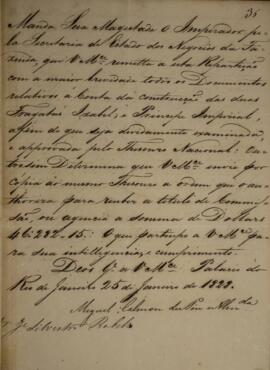 35
Manda Sua Magestade O Imperador pe-
la Secretaria de Estado dos Negocios da Fa-
zenda, que V Mce remetta a esta Repartição
com a maior brevidade todos os Documentos
relativos à Conta da construcção das duas
Fragatas Izabel, e Principe Imperial,
afim de que seja devidamente examinada,
e approvada pelo Thesouro Nacional. Ou-
trosim Determina que V Mce envie por
copia ao mesmo Thesouro a ordem que o au-
thorizara para receber a titulo de Commis-
são, ou agencia a somma de Dollars
46:232-15: O que participo a V Mce pa-
ra sua intelligencia, e cumprimento.
Deos Ge a V Mce Palacio do
Rio de Janeiro 25 de Janeiro de 1828.
Miguel Calmon du Pin e Almda
Silvestre Rebello